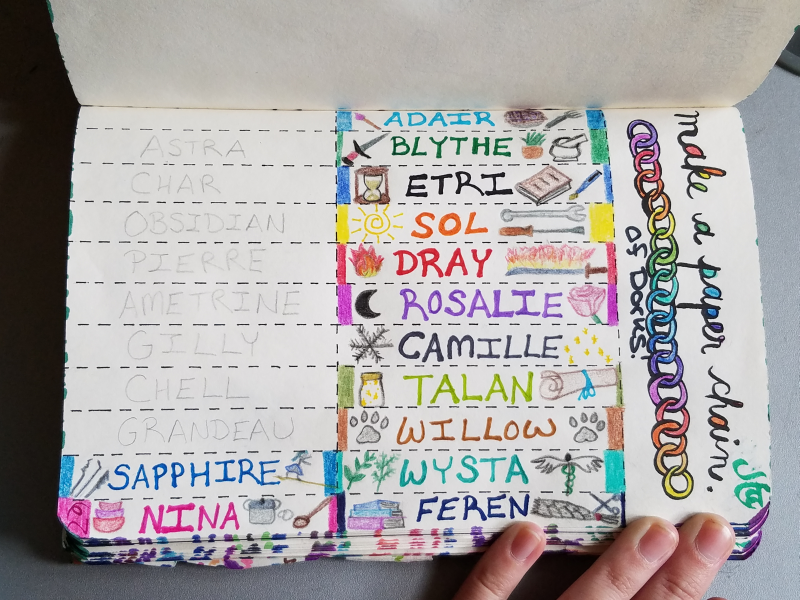 ASTRA
CHAR
OBSIDIAN
PIERRE
AMETRINE
GILLY
CHELL
GRANDEAU
SAPPHIRE
NINA
ADAIR
BLYTHE
ETRI
SOL
DRAY
ROSALIE
CAMILLE
TALAN
WILLOW
WYSTA
FEREN
make a paper chain.
of Dorks!